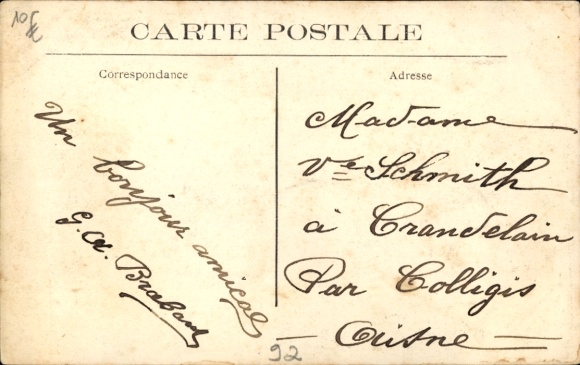 10F
CARTE POSTALE
Correspondance
Un
bonjour amical
G. A. Brabant
Adresse
Madame
Vve Schmith
à Crandelain
Par Colligis
— Aisne —
92